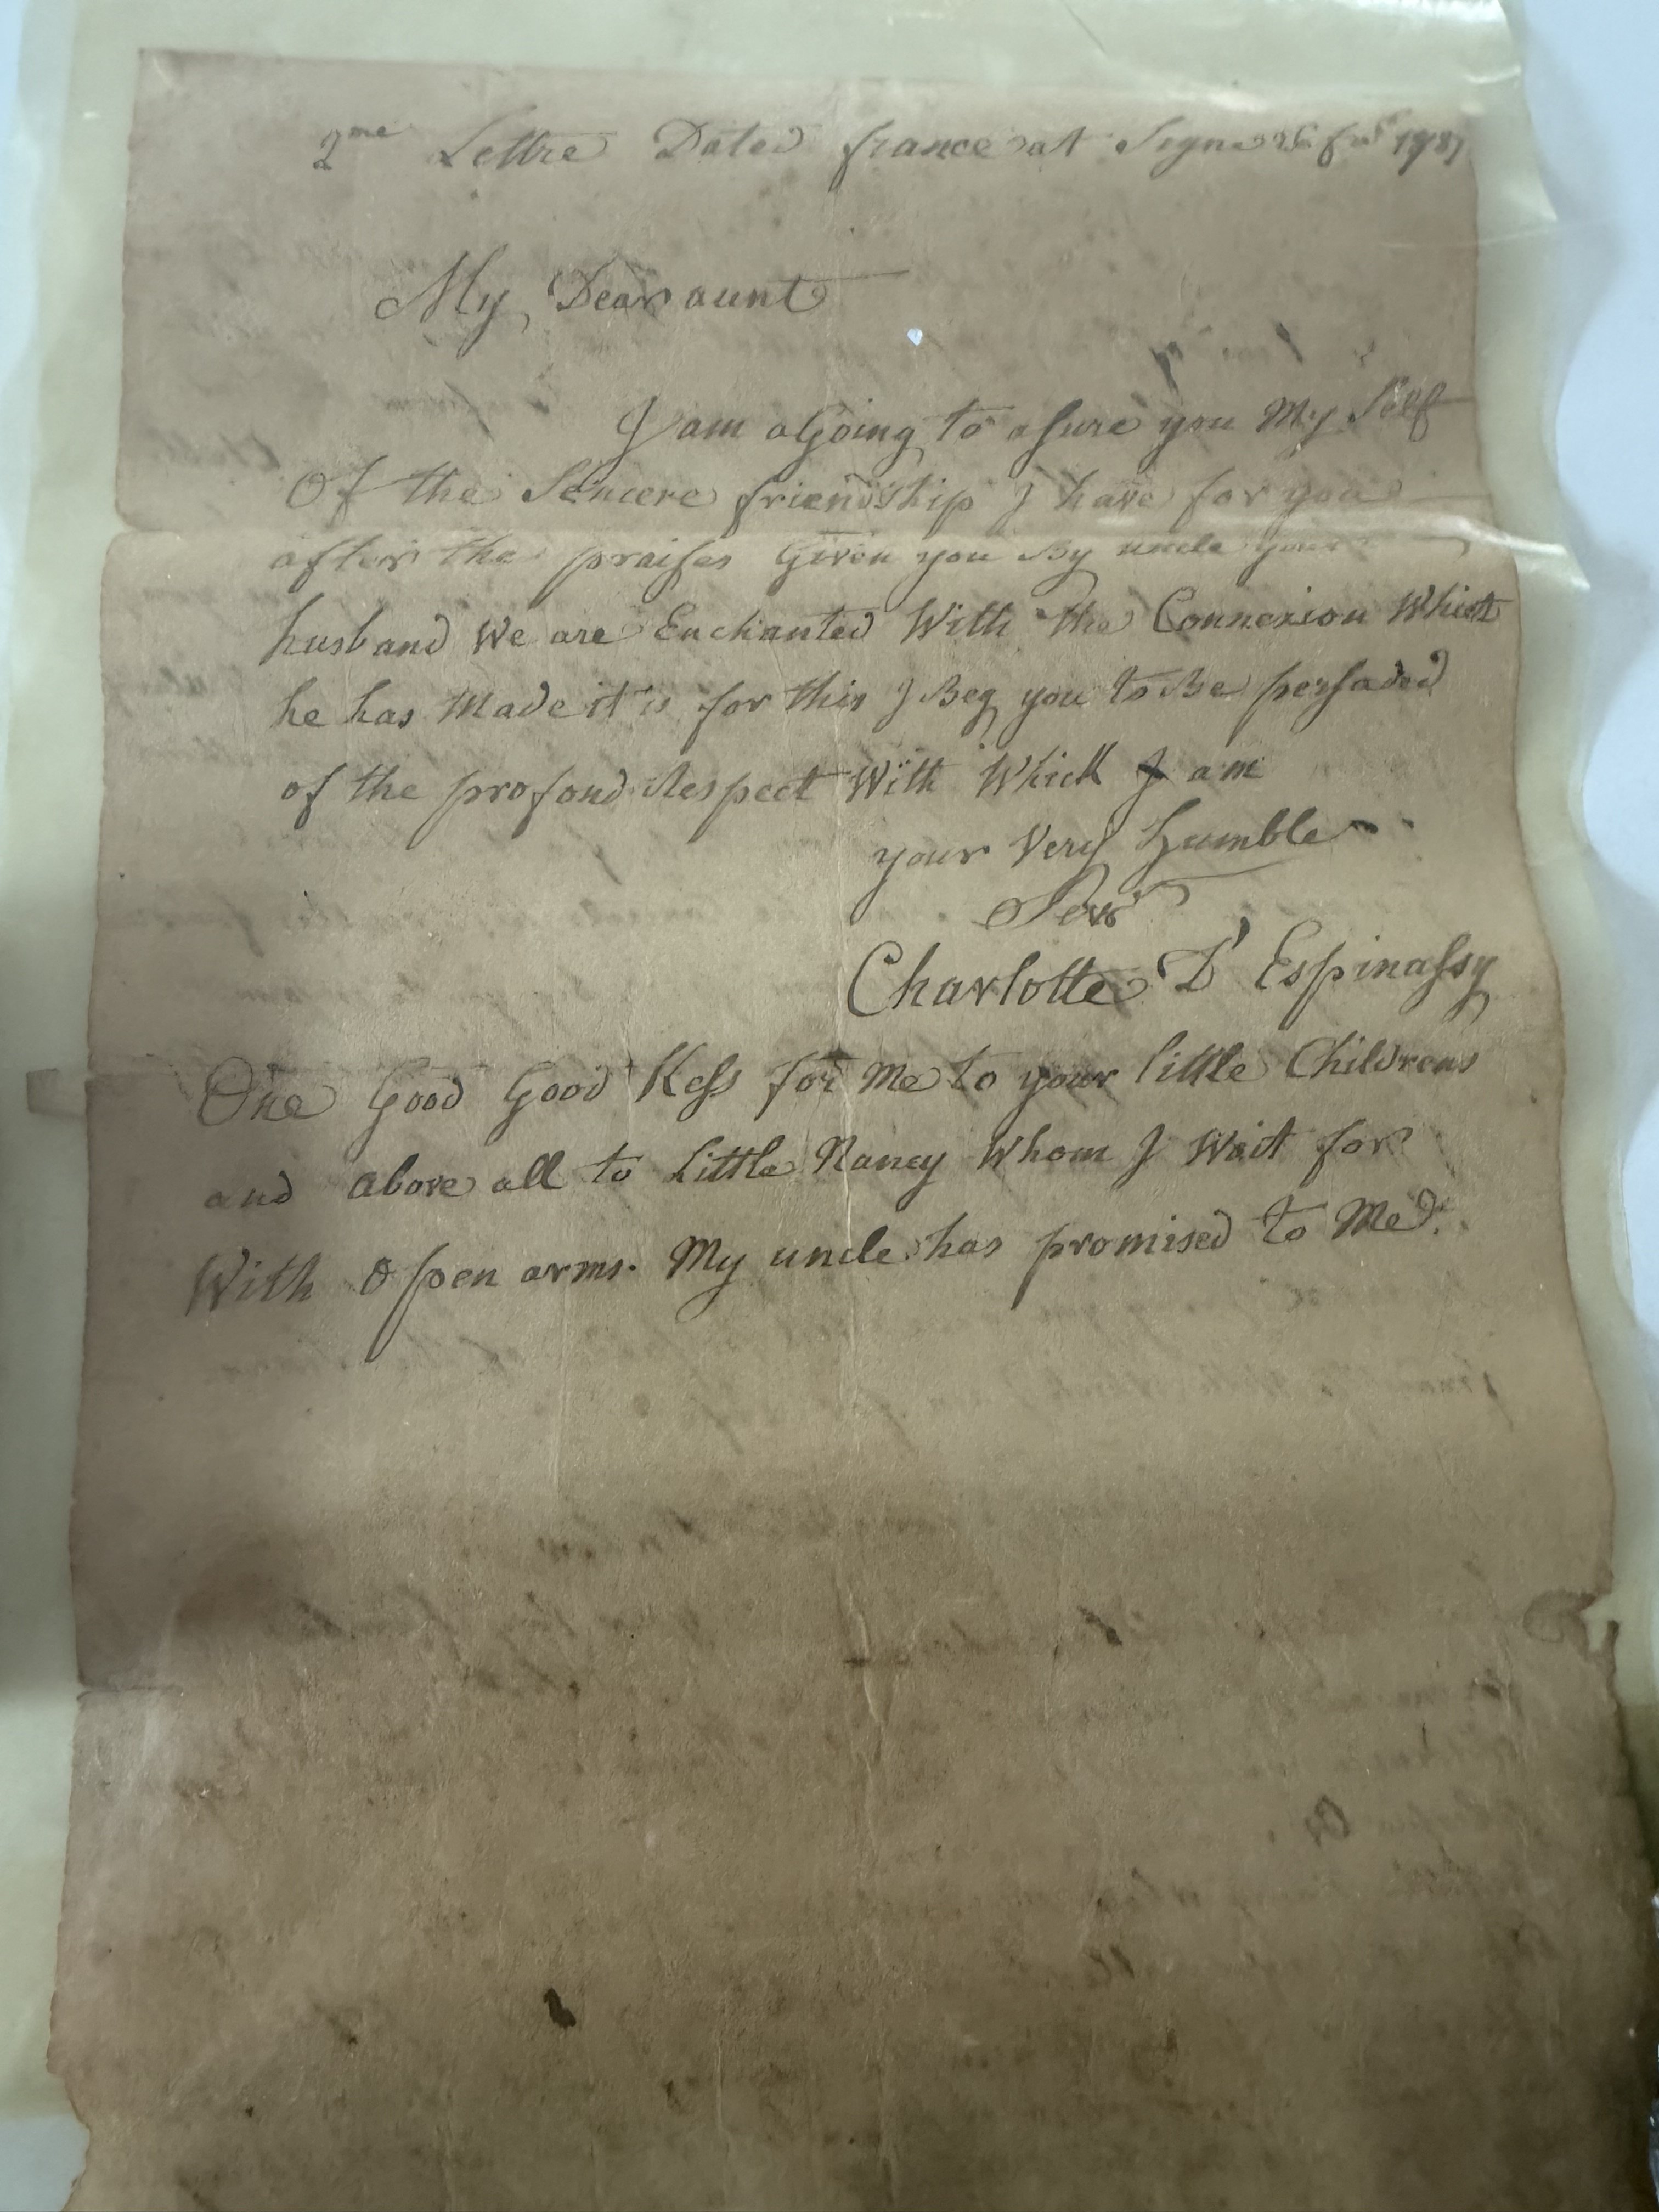 2me Lettre Dated france at Signe 26 1787
My Dear aunt
I am aGoing to asure you My Self
Of the Sencere friendship I have for you
after the praises Given you By uncle your
husband We are Enchanted With the Connexion Which
he has Made it is for this I Beg you to Be persaded
of the profond Respect With Which I am
your Very humble
Servt
Charlotte D' Espinassy
One Good Good Kess for Me to your little Childrens
and above all to Little Nancy Whom I Wait for
With Open arms. My uncle has promised to Me.